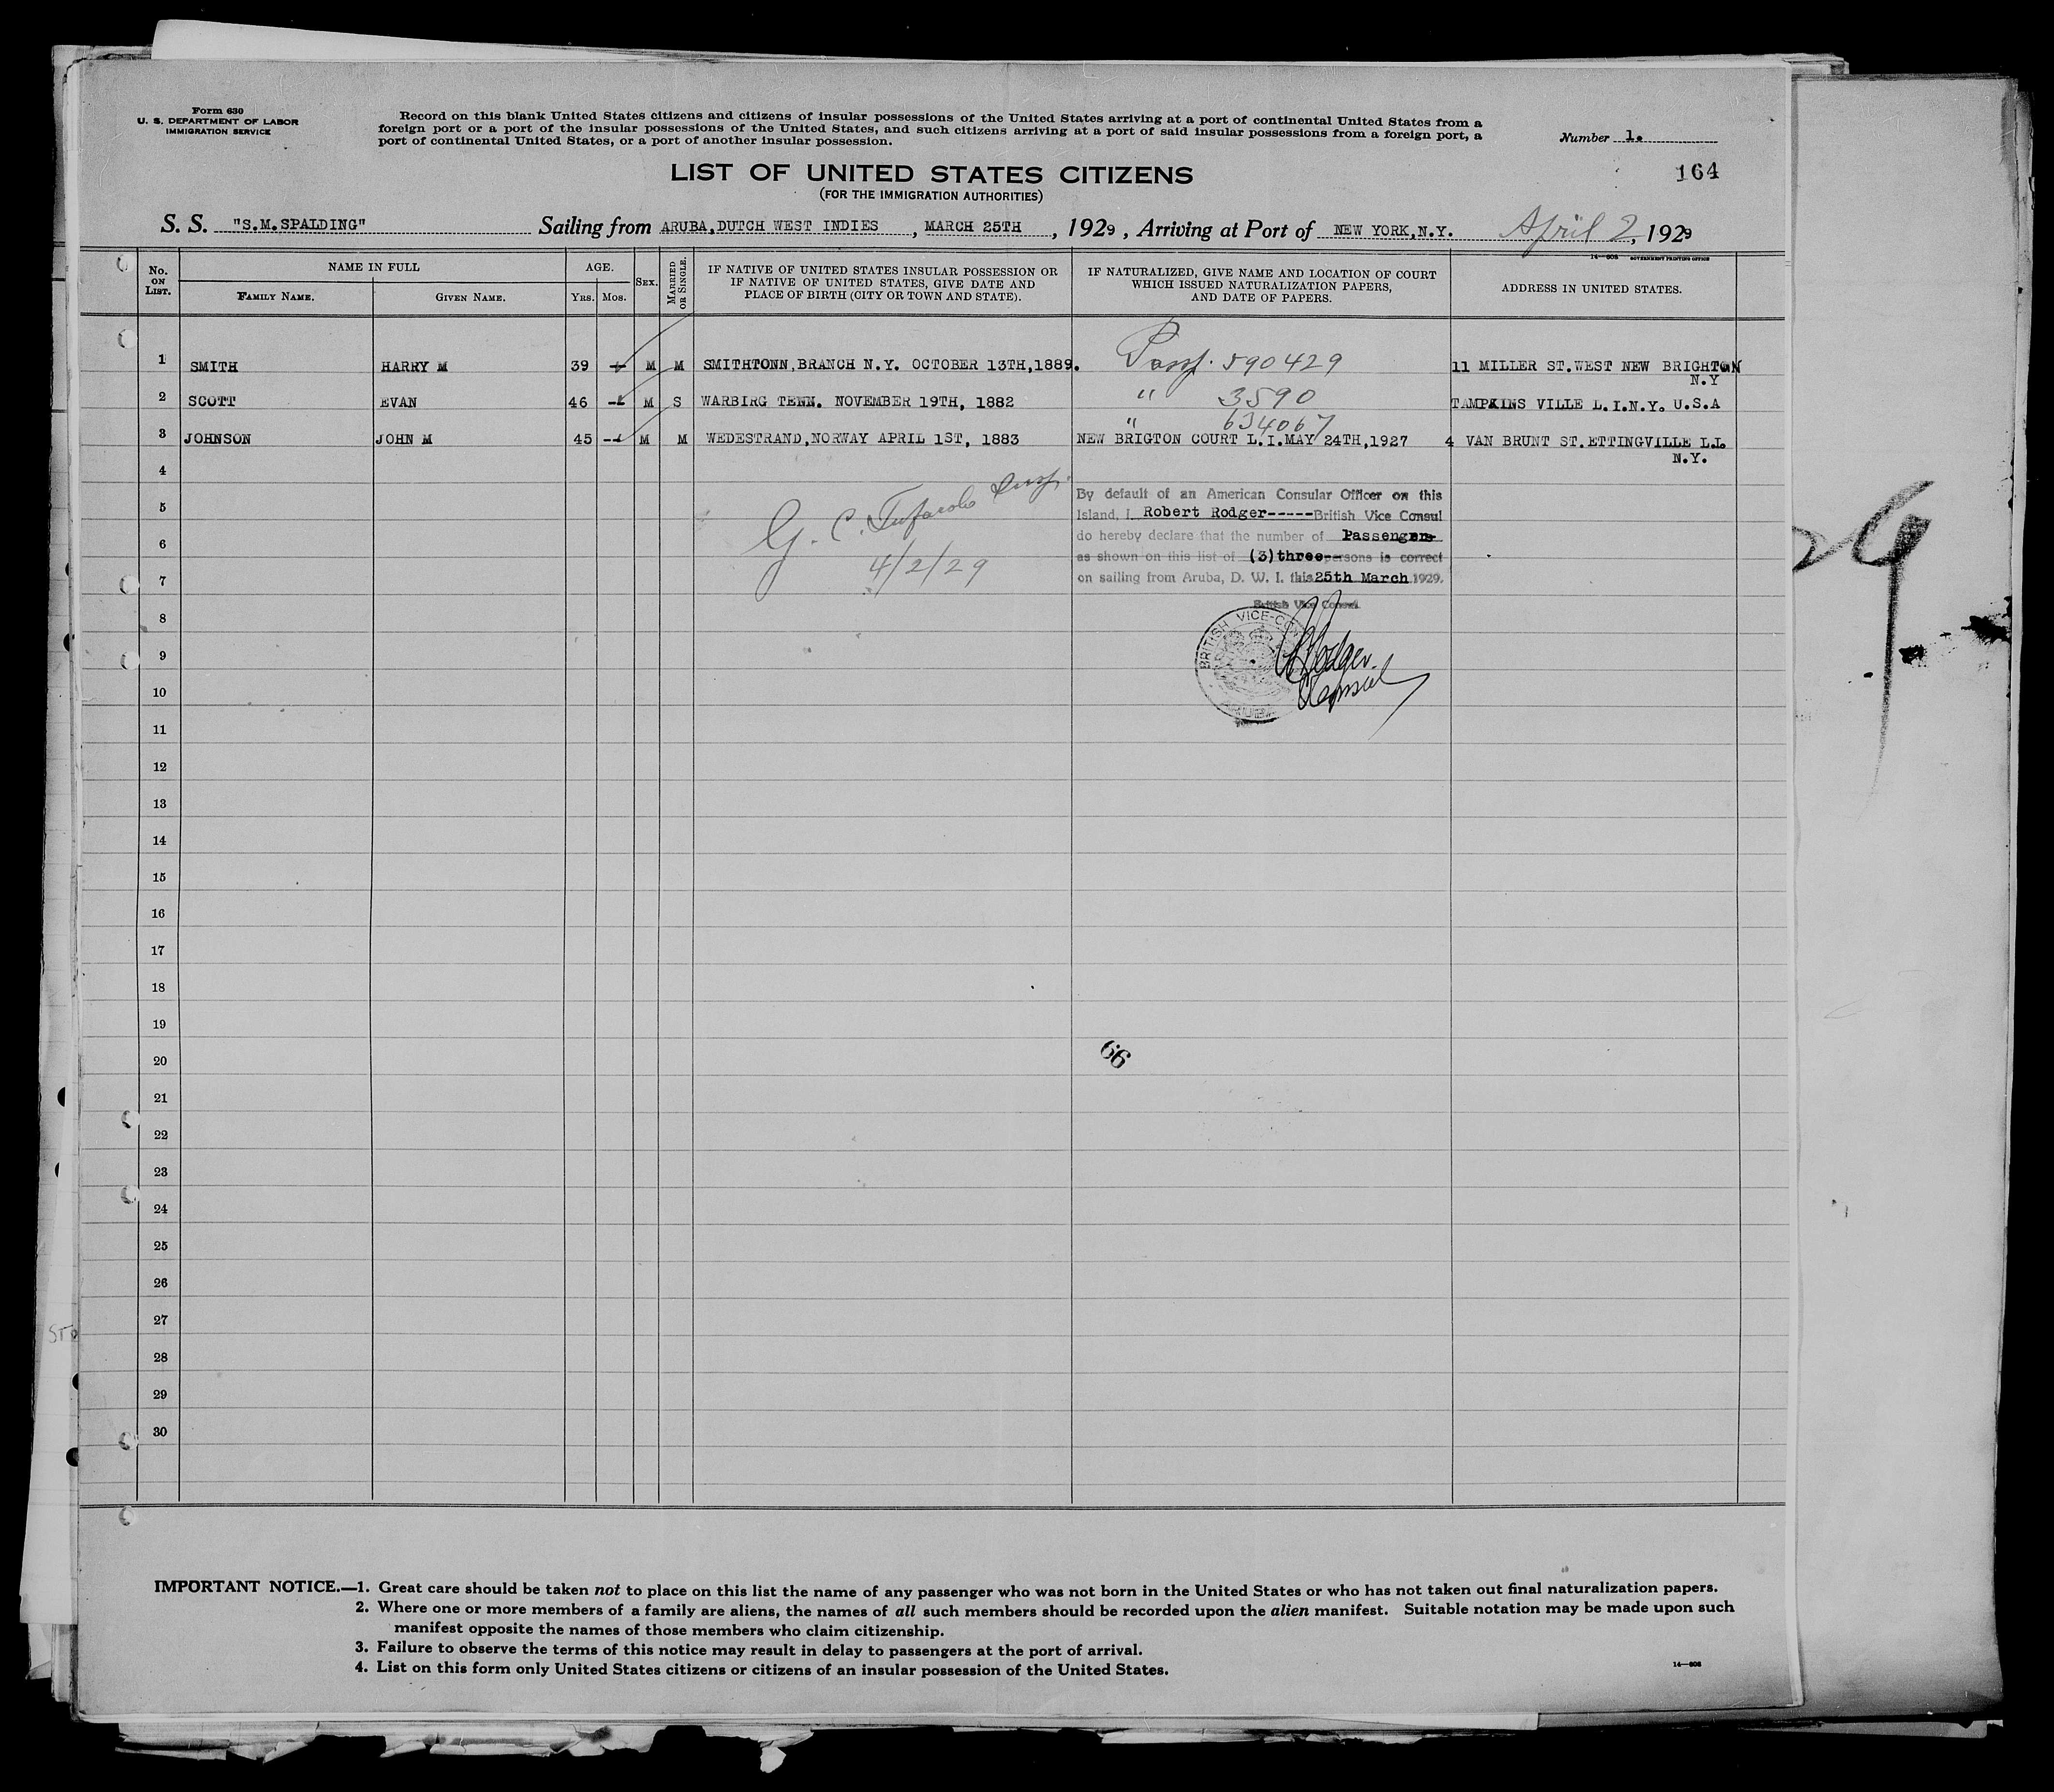 Form 630
U. S. DEPARTMENT OF LABOR
IMMIGRATION SERVICE
Record on this blank United States citizens and citizens of insular possessions of the United States arriving at a port of continental United States from a
foreign port or a port of the insular possessions of the United States, and such citizens arriving at a port of said insular possessions from a foreign port, a
port of continental United States, or a port of another insular possession.
Number 1.
164
LIST OF UNITED STATES CITIZENS
(FOR THE IMMIGRATION AUTHORITIES)
S. S. "S.M.SPALDING" Sailing from ARUBA,DUTCH WEST INDIES , MARCH 25TH , 1929 , Arriving at Port of NEW YORK,N.Y. April 2, 1929
14—608 GOVERNMENT PRINTING OFFICE
No. ON LIST.
NAME IN FULL
FAMILY NAME.
GIVEN NAME.
AGE.
YRS. MOS.
SEX.
MARRIED OR SINGLE.
IF NATIVE OF UNITED STATES INSULAR POSSESSION OR
IF NATIVE OF UNITED STATES, GIVE DATE AND
PLACE OF BIRTH (CITY OR TOWN AND STATE).
IF NATURALIZED, GIVE NAME AND LOCATION OF COURT
WHICH ISSUED NATURALIZATION PAPERS,
AND DATE OF PAPERS.
ADDRESS IN UNITED STATES.
1 SMITH HARRY M 39 M M SMITHTONN,BRANCH N.Y. OCTOBER 13TH,1889. Pass. 590429 11 MILLER ST.WEST NEW BRIGHTON
N.Y
2 SCOTT EVAN 46 M S WARBIRG TENN. NOVEMBER 19TH, 1882 " 3590 TAMPKINS VILLE L.I.N.Y. U.S.A
" 634067
3 JOHNSON JOHN M 45 M M WEDESTRAND,NORWAY APRIL 1ST, 1883 NEW BRIGTON COURT L.I.MAY 24TH,1927 4 VAN BRUNT ST.ETTINGVILLE L.I.
N.Y.
4
5
6
7
8
9
10
11
12
13
14
15
16
17
18
19
20
21
22
23
24
25
26
27
28
29
30
G. C. Insp.
4/2/29
By default of an American Consular Officer on this
Island, I Robert Rodger-----British Vice Consul
do hereby declare that the number of Passengers
as shown on this list of (3)three persons is correct
on sailing from Aruba, D. W. I. this 25th March 1929.
British Vice Consul
BRITISH VICE-CON
ARUBA
Rodger
Consul
66
29
IMPORTANT NOTICE.—1. Great care should be taken not to place on this list the name of any passenger who was not born in the United States or who has not taken out final naturalization papers.
2. Where one or more members of a family are aliens, the names of all such members should be recorded upon the alien manifest. Suitable notation may be made upon such
manifest opposite the names of those members who claim citizenship.
3. Failure to observe the terms of this notice may result in delay to passengers at the port of arrival.
4. List on this form only United States citizens or citizens of an insular possession of the United States.
14—608